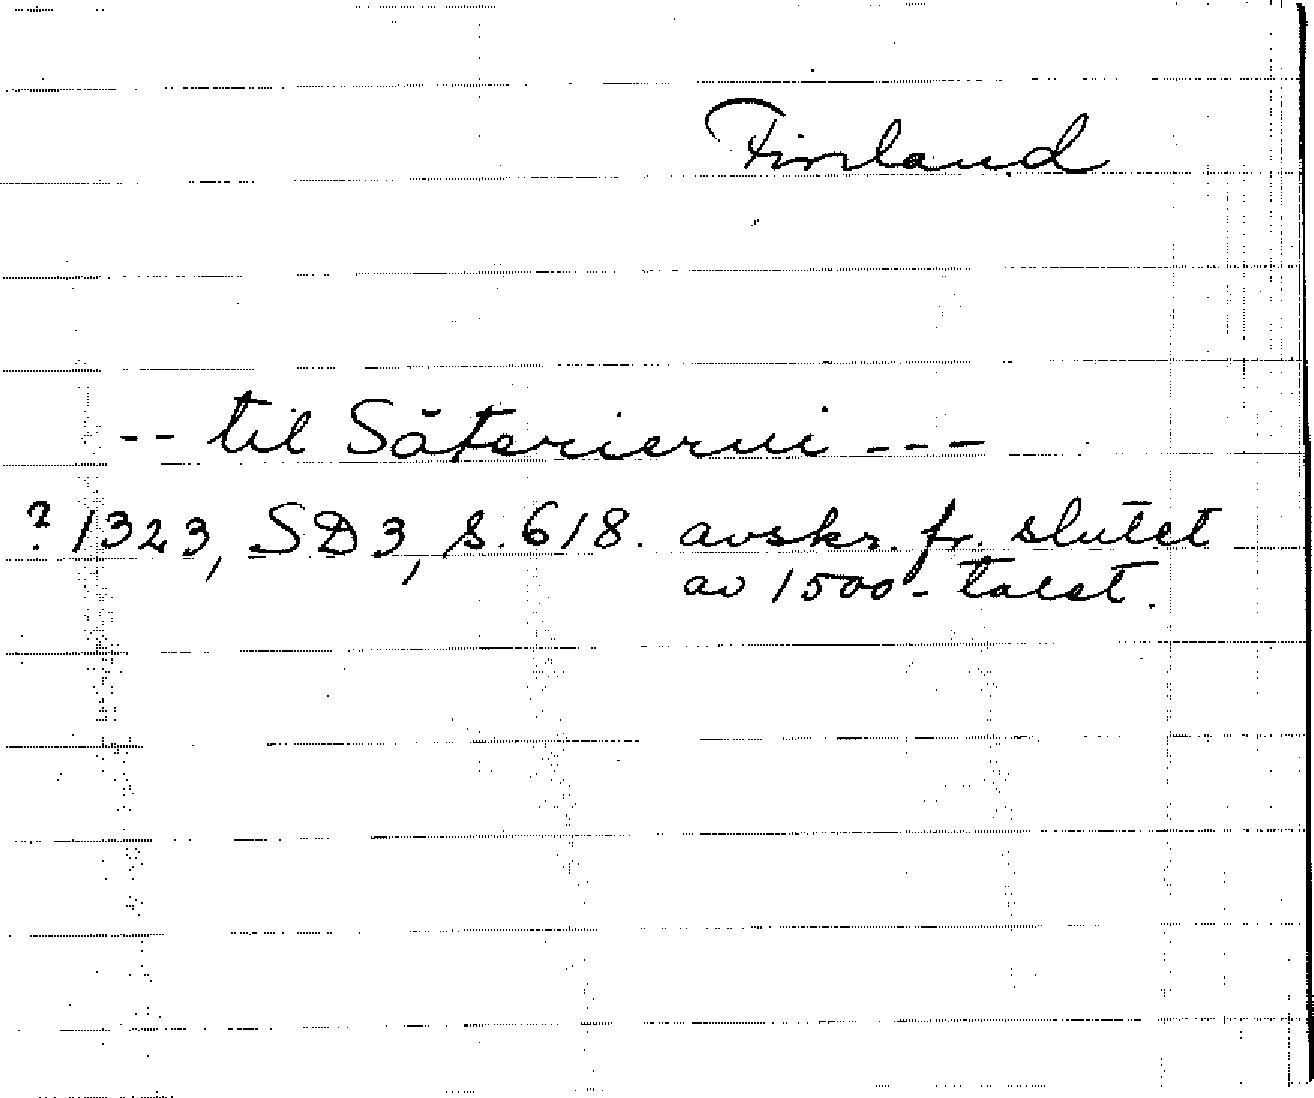 Finland
-- til Säterierni ---
? 1323, SD3, s. 618. avskr. fr. slutet
av 1500-talet.